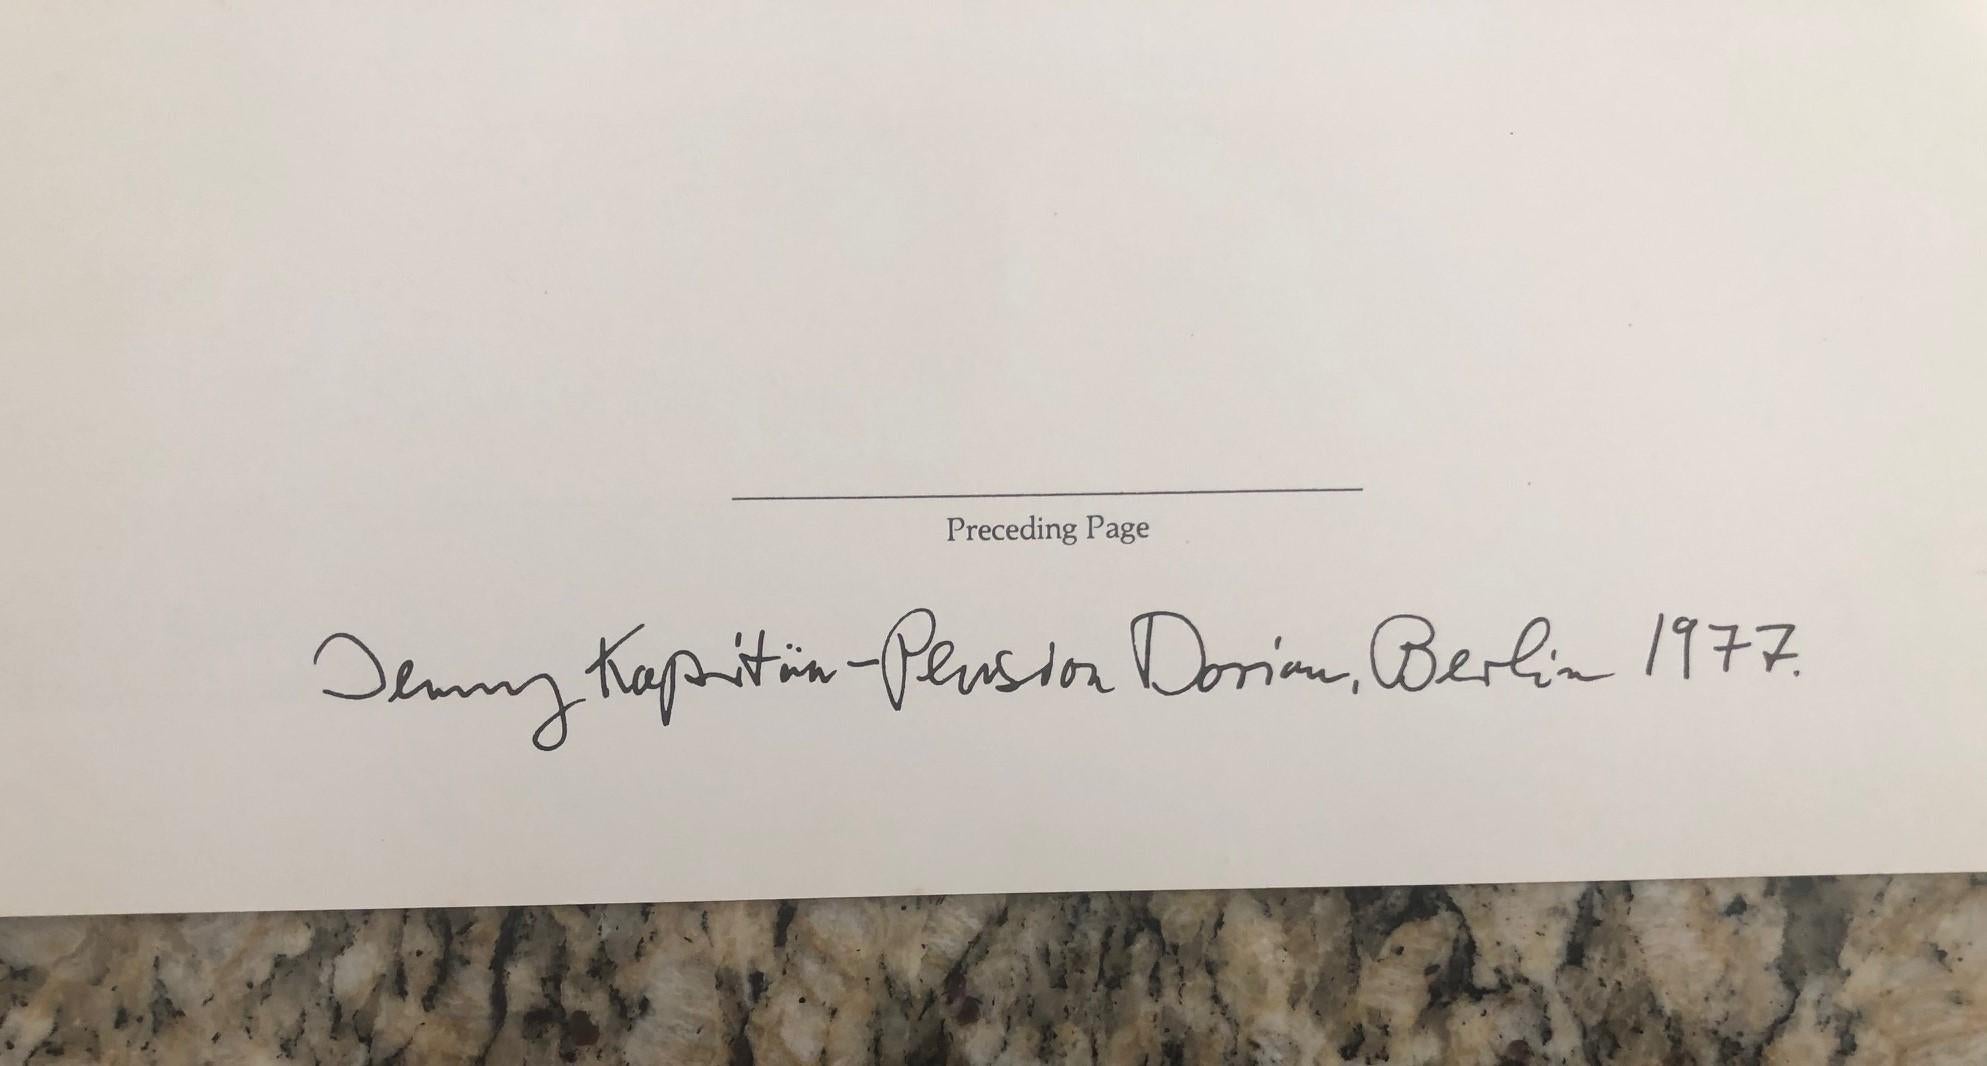 Preceding Page
Jenny Kapitän-Pension Dorian, Berlin 1977.